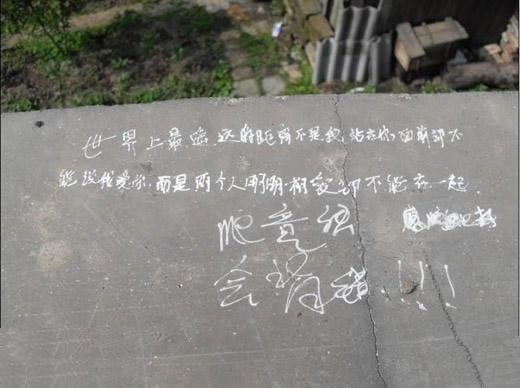 世界上最遥远的距离不是我站在你面前却不
能说我爱你,而是两个人明明相爱却不能在一起.
会
!!!